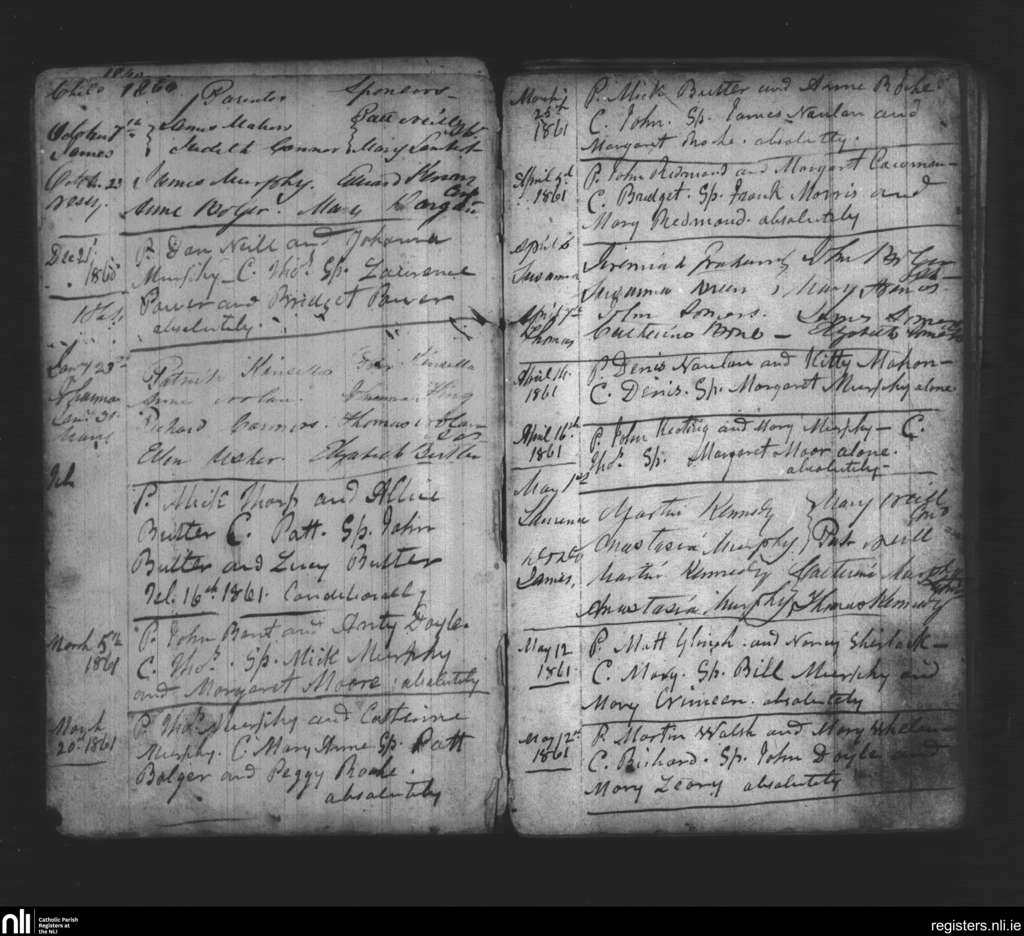 1860
Child 1860 Parents Sponsors
October 7th James Mahon Patt Neill
James Judith Connor Mary
October 23 James Murphy. Edward
Anne Bolger. Mary
Dec 25 P. Dan Neill and Johanna
1860 Murphy - C. Thos. Sp. Lawrence
Power and Bridget Power
absolutely.
Jany 23rd Patrick Kinsella Kinsella
Anne Nolan. King
Jany 31 Richard Connors. Thomas
Ellen Usher. Elizabeth Butler
Feb
P. Mick Thorp and Allice
Butter C. Patt. Sp. John
Butter and Lucy Butter
Feb. 16th 1861. Conditionally
March 5th P. John Brent and Anty Doyle
1861 C. Thos. Sp. Mick Murphy
and Margaret Moore. absolutely
March P. Thos. Murphy and Catherine
20th 1861 Murphy. C. Mary Anne Sp. Patt
Bolger and Peggy Roche.
absolutely
March P. Mick Butter and Anne Roche
25th C. John. Sp. James Nowlan and
1861 Margaret Roche. absolutely.
April 3d P. John Redmond and Margaret
1861 C. Bridget. Sp. Frank Morris and
Mary Redmond. absolutely
April 6 Jeremiah John
Susanna Susanna Breen Mary
April 7th John Connors. James
Thomas Catherine Byrne - Elizabeth
April 14. P. Denis Nowlan and Kitty Mahon -
1861 C. Denis. Sp. Margaret Murphy alone
April 16th P. John Keating and Mary Murphy - C.
1861 Thos. Sp. Margaret Moor alone.
absolutely -
May 1st
Laurence Martin Kennedy Mary Neill
Anastasia Murphy Pat Neill
James, Martin Kennedy Catherine Murphy
Anastasia Murphy Thomas Kennedy
May 12 P. Matt and Nancy Sherlock -
1861. C. Mary. Sp. Bill Murphy and
Mary Crimeen. absolutely
May 12th P. Martin Walsh and Mary Whelan
1861 C. Richard. Sp. John Doyle and
Mary Leary absolutely
nli Catholic Parish
Registers at
the NLI
registers.nli.ie